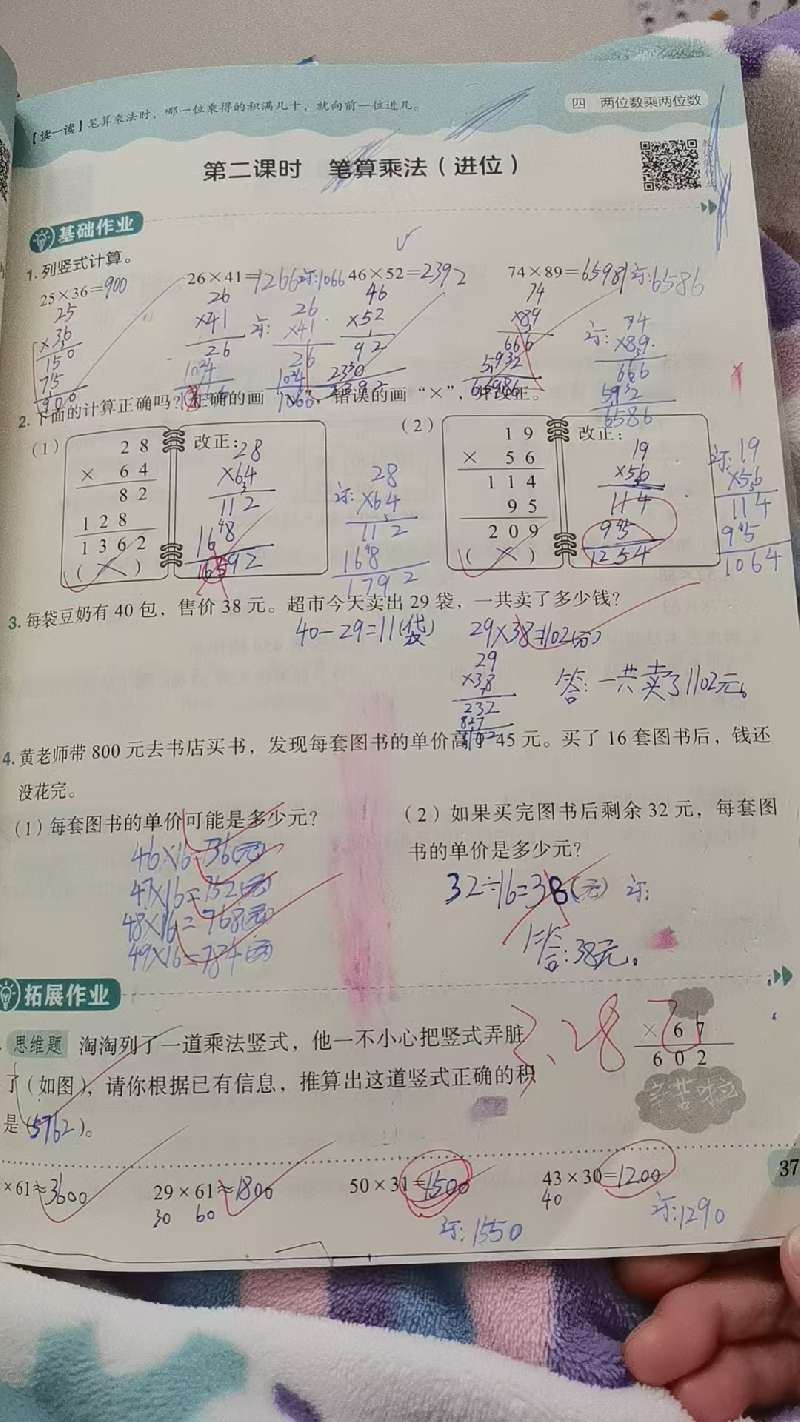 【读一读】笔算乘法时，哪一位乘得的积满几十，就向前一位进几。
四 两位数乘两位数
第二课时 笔算乘法（进位）
基础作业
1. 列竖式计算。
25×36=900 26×41=1266 订:1066 46×52=2392 74×89=65981 订:6586
25 26 26 46 74 74
×36 ×41 订: ×41 ×52 ×89 订: ×89
150 26 26 92 666 666
75 104 104 230 5932 592
900 1066 2392 6586
2. 下面的计算正确吗？正确的画“√”，错误的画“×”，并改正。
（1） （2）
28 改正: 28 28 19 改正: 19 订: 19
× 64 ×64 订: ×64 × 56 ×56 ×56
82 112 112 114 114 114
128 168 168 95 95 95
1362 1792 209 1254 1064
（×） （×）
3. 每袋豆奶有 40 包，售价 38 元。超市今天卖出 29 袋，一共卖了多少钱？
40-29=11(袋) 29×38=1102(元)
29
×38
232 答:一共卖了1102元。
87
4. 黄老师带 800 元去书店买书，发现每套图书的单价高于 45 元。买了 16 套图书后，钱还
没花完。
（1）每套图书的单价可能是多少元？ （2）如果买完图书后剩余 32 元，每套图
书的单价是多少元？
46×16=736(元)
47×16=752(元) 32÷16=38(元) 订:
48×16=768(元)
49×16=784(元) 答:38元。
拓展作业
思维题 淘淘列了一道乘法竖式，他一不小心把竖式弄脏
了（如图），请你根据已有信息，推算出这道竖式正确的积
是（5762）。
×67
602
37
×61≈3600 29×61≈1800 50×31=1500 43×30=1200
30 60 40
订:1550 订:1290